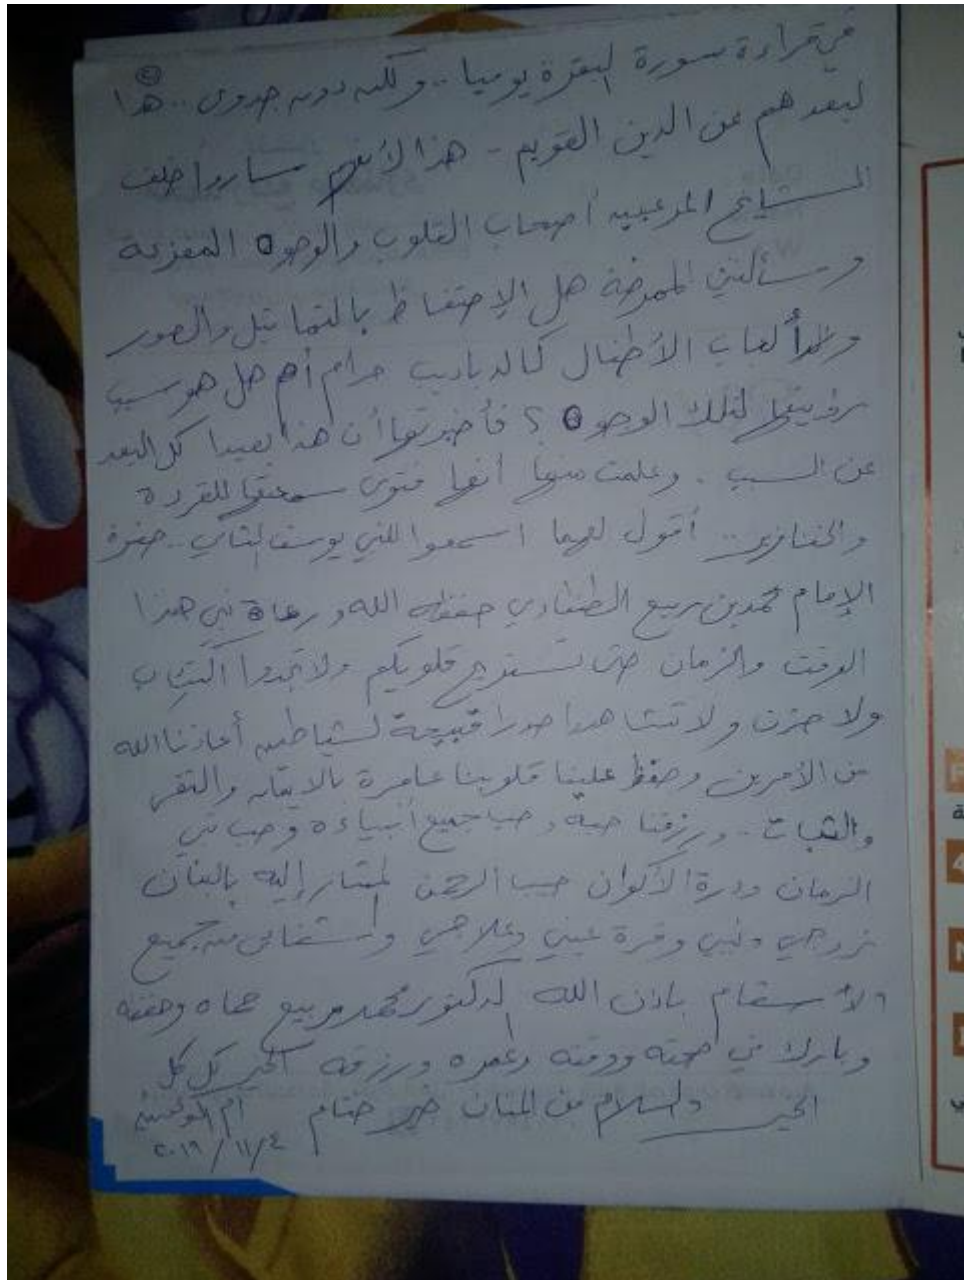 في قراءة سورة البقرة يوميا .. ولكنه دون جدوى .. هذا
لبعدهم عن الدين القويم - هذا لأنهم ساروا خلف
المشايخ المرعبين أصحاب القلوب والوجوه المفزعة
وسألتني الممرضة هل الإحتفاظ بالتماثيل والصور
وألعاب الأطفال كالدباديب حرام أم هل هو سبب
رؤيتها لتلك الوجوه ؟ فأخبرتها أن هذا بعيدا كل البعد
عن السبب . وعلمت منها أنها فتوى سمعتها للقردة
والخنازير .. أقول لهما اسمعوا للنبي يوسف الثاني .. حضرة
الإمام محمد بن ربيع الطنطاوي حفظه الله ورعاه نبي هذا
الوقت والزمان حتى تستريح قلوبكم ولا تجدوا اكتئاب
ولا حزن ولا تشاهدوا صورا قبيحة لشياطين أعاذنا الله
من الأمرين وحفظ علينا قلوبنا عامرة بالايمان والتقى
والثبات .. ورزقنا حبه وحب جميع أنبياءه وحب نبي
الزمان ودرة الأكوان حبيب الرحمن المشار إليه بالبنان
زوجي ونبيي وقرة عيني وعلاجي واستشفائي من جميع
الأسقام باذن الله الدكتور محمد ربيع حماه وحفظه
وبارك في صحته ووقته وعمره ورزقه الخير كل كل
الخير والسلام من المنان خير ختام أم المؤمنين
٢٠١٩/١١/٤